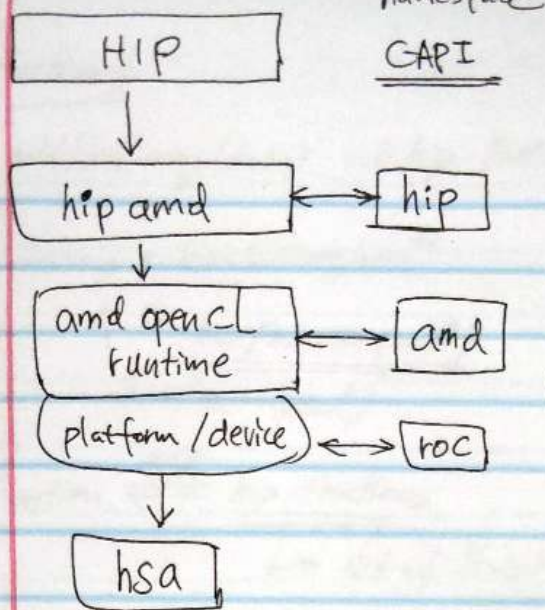 namespace
HIP
CAPI
hip amd
hip
amd openCL
runtime
amd
platform / device
roc
hsa